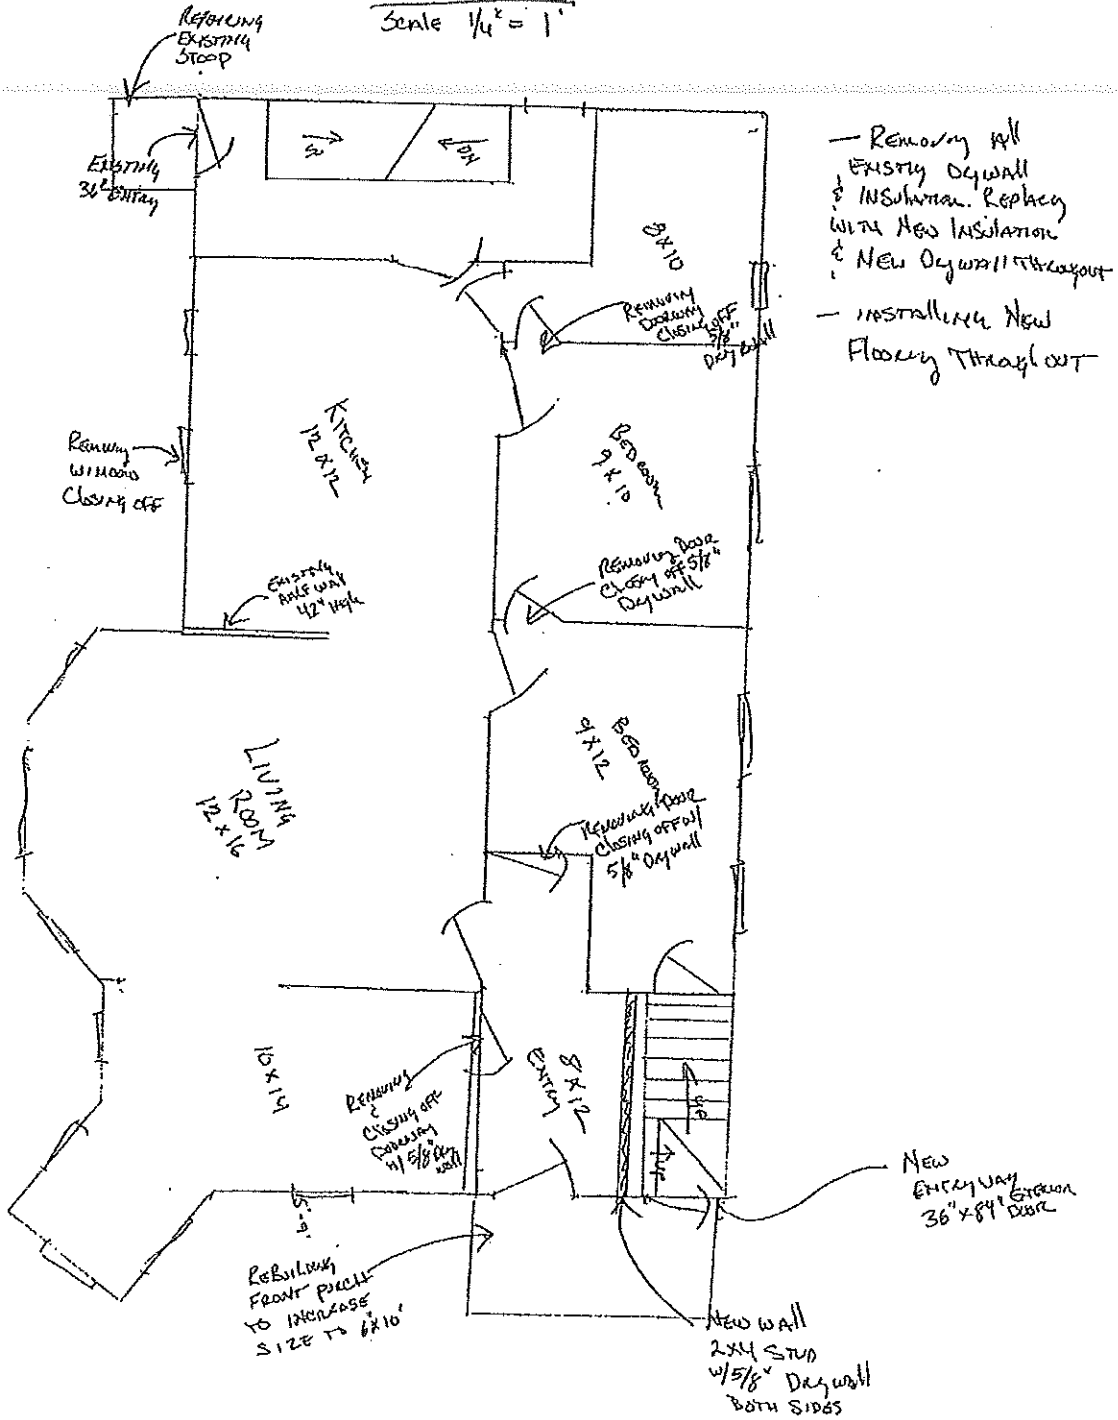 Scale 1/4" = 1'
REPAIRING
EXISTING
STOOP
EXISTING
36" ENTRY
UP
DN
8X10
— REMOVING All
EXISTING DRYWALL
& INSULATION. REPLACING
WITH NEW INSULATION
& NEW DRYWALL THROUGHOUT
— INSTALLING NEW
FLOORING THROUGHOUT
REMOVING
DOORWAY
CLOSING OFF
5/8"
DRYWALL
KITCHEN
12X12
BEDROOM
9X10
REMOVING
WINDOW
CLOSING OFF
EXISTING
HALF WALL
42" HIGH
REMOVING DOOR
CLOSING OFF 5/8"
DRYWALL
LIVING
ROOM
12X16
BEDROOM
9X12
REMOVING DOOR
CLOSING OFF W/
5/8" DRYWALL
10X14
REMOVING
&
CLOSING OFF
DOORWAY
W/ 5/8" DRY
WALL
ENTRY
8X12
UP
UP
5'-9"
NEW
ENTRYWAY
36"X84" EXTERIOR
DOOR
REBUILDING
FRONT PORCH
TO INCREASE
SIZE TO 6'X10'
NEW WALL
2X4 STUD
W/5/8" DRYWALL
BOTH SIDES